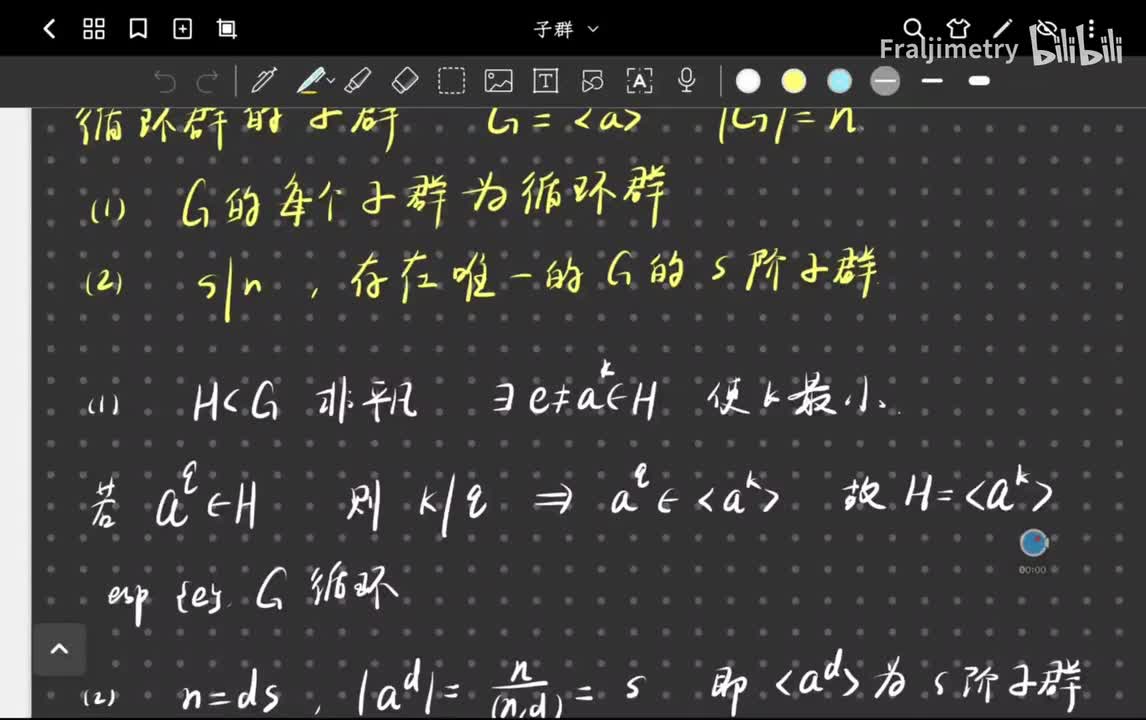 子群
Fraljimetry bilibili
循环群的子群 G = <a> |G| = n
(1) G的每个子群为循环群
(2) s|n , 存在唯一的G的s阶子群
(1) H<G 非平凡 ∃ e≠a^k∈H 使k最小.
若 a^q∈H 则 k|q ⇒ a^q∈<a^k> 故 H=<a^k>
00:00
esp {e}. G 循环
(2) n=ds , |a^d| = n/(n,d) = s 即 <a^d> 为 s 阶子群